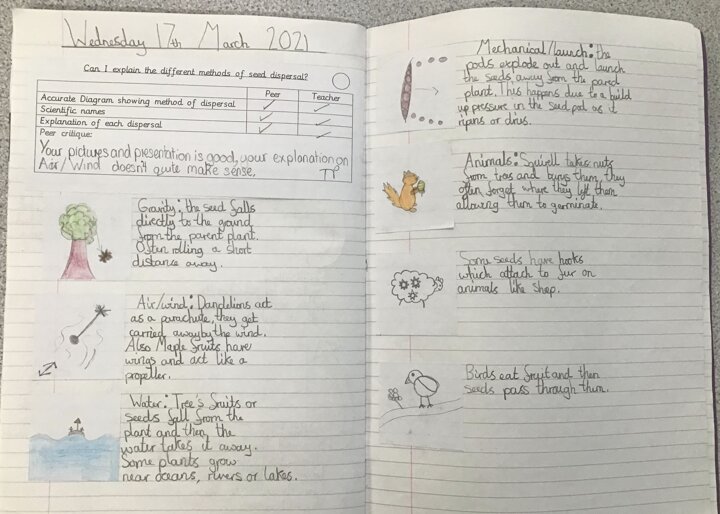 Wednesday 17th March 2021
Can I explain the different methods of seed dispersal?
Peer Teacher
Accurate Diagram showing method of dispersal ✓ ✓
Scientific names ✓ ✓
Explanation of each dispersal ✓ ✓
Peer critique:
Your pictures and presentation is good, your explanation on
Air/Wind doesn't quite make sense.
Gravity: the seed falls
directly to the ground
from the parent plant.
Often rolling a short
distance away.
Air/wind: Dandelions act
as a parachute, they get
carried away by the wind.
Also Maple fruits have
wings and act like a
propeller.
Water: Tree's fruits or
seeds fall from the
plant and then the
water takes it away.
Some plants grow
near oceans, rivers or lakes.
Mechanical/launch: the
pods explode out and launch
the seeds away from the parent
plant. This happens due to a build
up pressure in the seed pod as it
ripens or dries.
Animals: Squirell takes nuts
from trees and burys them, they
often forget where they left them
allowing them to germinate.
Some seeds have hooks
which attach to fur on
animals like sheep.
Birds eat fruit and then
seeds pass through them.